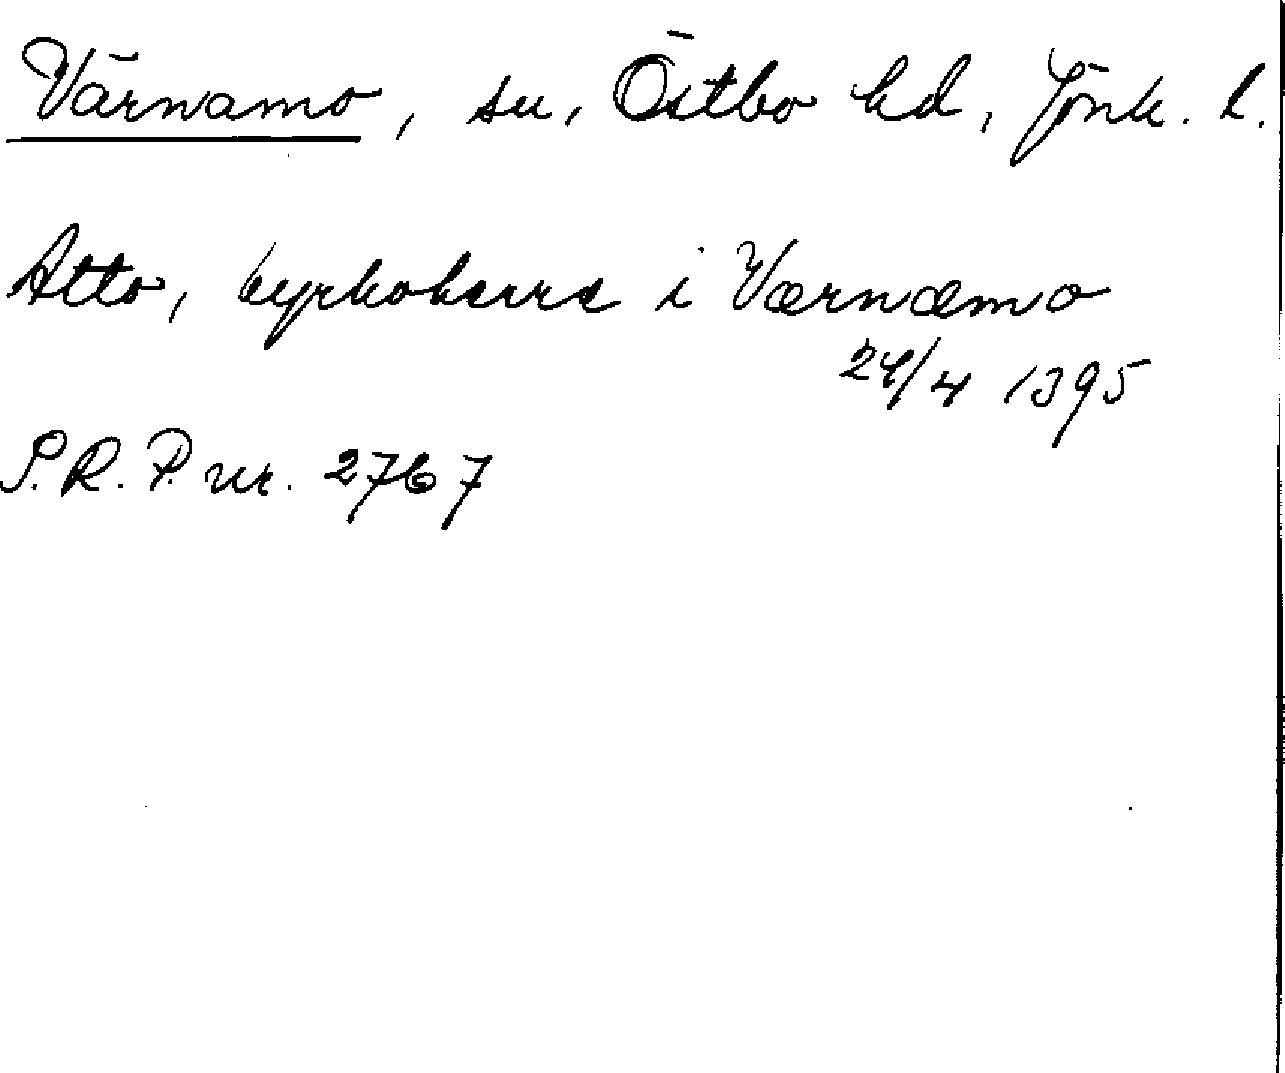 Värnamo, sn, Östbo hd, Jönk. l.
Atto, kyrkoherre i Værnæmo
24/4 1395
S.R.P. nr. 2767